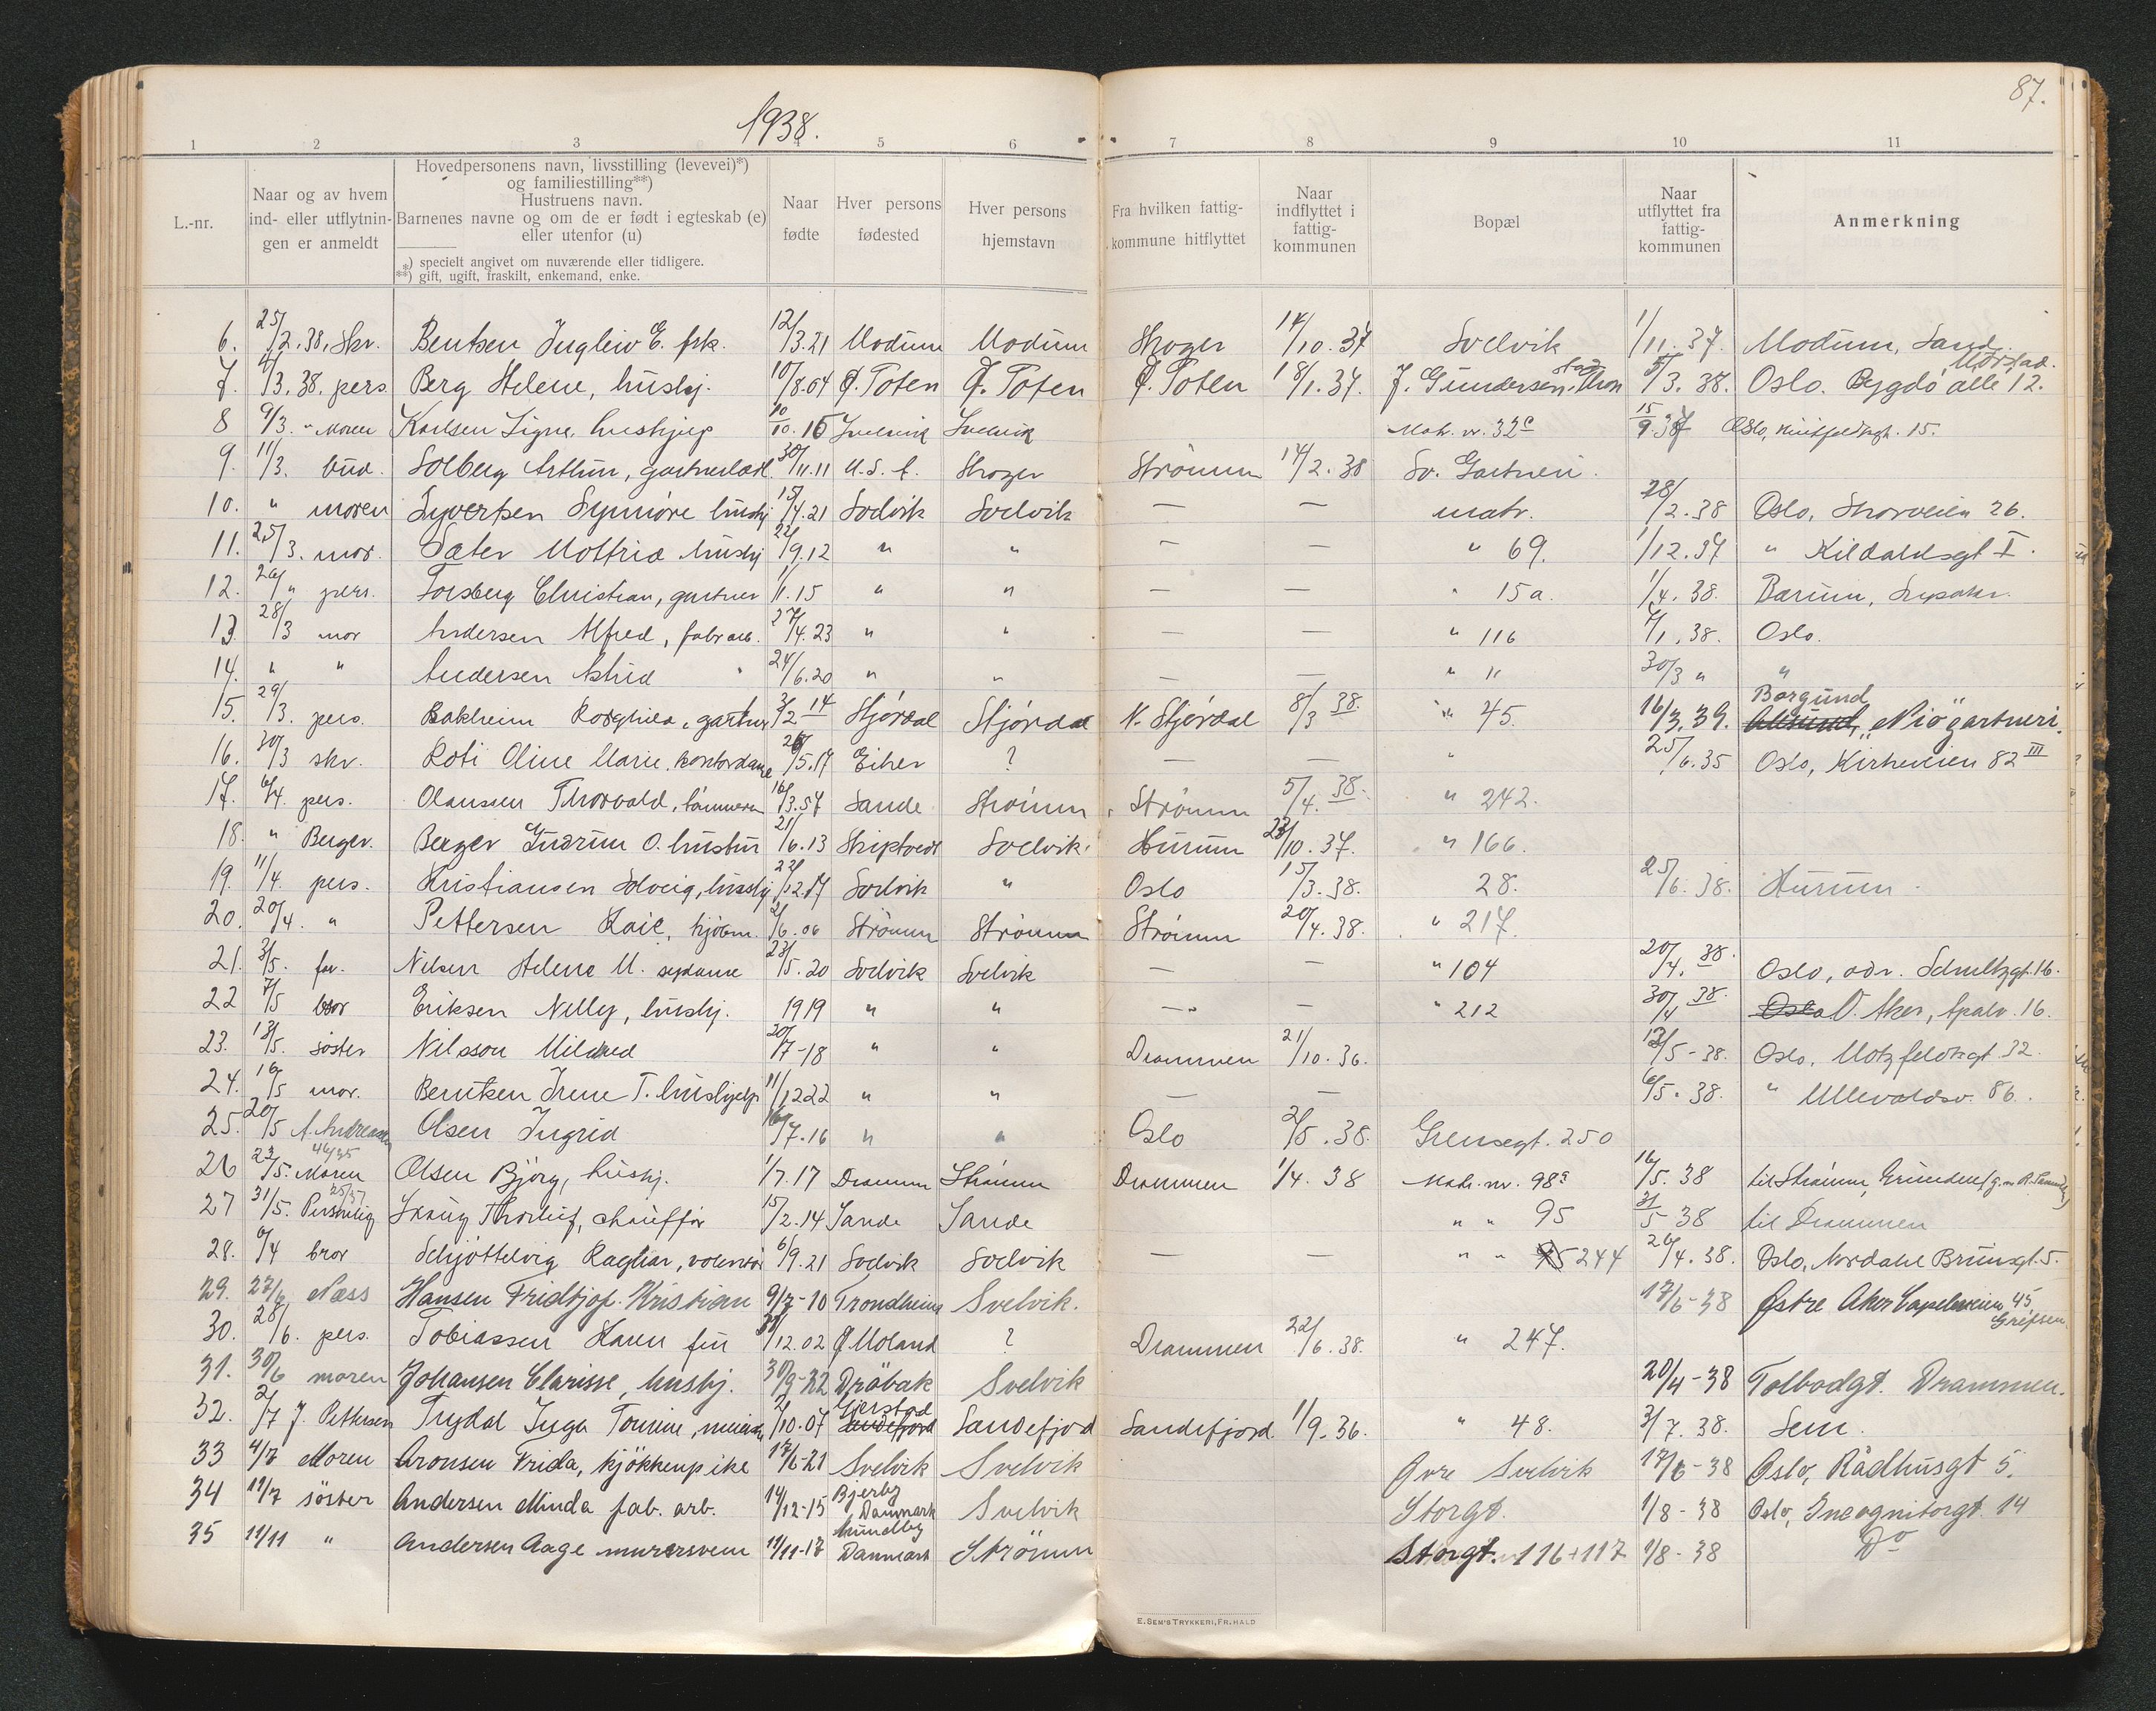 1938.
87.
1 2 3 4 5 6 7 8 9 10 11
L.-nr.
Naar og av hvem
ind- eller utflytnin-
gen er anmeldt
Hovedpersonens navn, livsstilling (levevei)*)
og familiestilling**)
Hustruens navn.
Barnenes navne og om de er født i egteskab (e)
eller utenfor (u)
*) specielt angivet om nuværende eller tidligere.
**) gift, ugift, fraskilt, enkemand, enke.
Naar
fødte
Hver persons
fødested
Hver persons
hjemstavn
Fra hvilken fattig-
kommune hitflyttet
Naar
indflyttet i
fattig-
kommunen
Bopæl
Naar
utflyttet fra
fattig-
kommunen
Anmerkning
6. 25/2.38. Skr. Bentsen E. frk. 12/3.21 Modum Modum Skoger 14/10.37 Svelvik 1/11.37. Modum, Sand
7. 4/3.38. pers Berg Helene, hushj. 10/8.04 Ø. Toten Ø. Toten Ø. Toten 18/1.37. J. Gundersen 5/3.38. Oslo. Bygdö allé 12.
8 9/3. " Moren Karlsen Signe, hushjelp 20/10.16 Svelvik Svelvik Matr. nr. 32c 15/9.37 Oslo, 15.
9. 11/3. bud. Solberg Arthur, 30/11.11 U.S.A. Skoger Strömm 14/2.38 Sv. Gartneri.
10. " moren Syvertsen Synnöve hushj 15/4.21 Svelvik Svelvik — — matr. 28/2.38 Oslo, 26.
11. 25/3. mor. Sæter hushj 22/9.12 " " — — " 69. 1/12.37 " I.
12. 26/" pers. Forsberg Christian, gartner 1/1.15 " " — — " 15a. 1/4.38. Bærum,
13 28/3 mor Andersen Alfred, fabr arb. 27/4.23 " " — — " 116 7/1.38. Oslo.
14. " " Andersen Astrid " 24/6.20 " " — — " " 30/3 " "
15. 29/3. pers. Bakheim gartner 3/2 14 Stjördal Stjördal N. Stjördal 8/3 38. " 45. 16/3.39. Borgund
Ålesund, "Niö" gartneri.
16. 30/3 skr. Roti Oline Marie. kontordame 26/5.17 Eiker ? — — " 25/6.35 Oslo, Kirkeveien 82 III
17. 6/4. pers. Olaussen Thorvald, 16/3.57 Sande Strömm Strömm 5/4.38. " 242.
18. " Berger. Berger Gudrun O. hustru 21/6.13 Skiptvedt Svelvik. Hurum 23/10.37. " 166.
19. 11/4. pers. Kristiansen Solveig, hushj 22/12.17 Svelvik " Oslo 15/3.38. 28. 25/6.38. Hurum.
20. 20/4. " Pettersen Kaie, kjöbm. 2/6.06 Strömm Strömm Strömm 20/4.38. " 217.
21. 3/5. far. Nilsen Helene M. sydame 23/5.20 Svelvik Svelvik — — " 104 20/4.38. Oslo, adr. Schultzgt.16.
22 7/5 bror Eriksen Nelly, hushj. 1919 " " — — " 212 30/4 38. Oslo V. Aker, Apalv. 16.
23. 13/5. söster Nilsson Mildred 20/7-18 " " Drammen 21/10.36. 12/5-38. Oslo, Motzfeldtsgt 32.
24. 16/5 mor. Berntsen Irene T. hushjelp 11/12 22 " " — — 6/5.38. " Ullevaldsv. 86.
25. 20/5 A. Andreassen Olsen Ingrid 16/7.16 " " Oslo 2/5.38. Grensegt. 250
26 23/5. Moren 46/35 Olsen Björg, hushj. 1/7.17 Drammen Strömm Drammen 1/4.38 Matr. nr. 98a 16/5.38 til Strömm,
27 31/5. Personlig 25/37 Skaug Thorleif, chauffør 15/2.14 Sande Sande " " 95 31/5 38 til Drammen
28. 6/4 bror Schjöttelvig Ragnar, 6/9.21 Svelvik Svelvik — — " " 95 244 26/4.38. Oslo, Nordahl Brunsgt.5.
29. 27/6 Næss Hansen Fridtjof. Kristian 9/7-10 Trondheim Svelvik. 17/6-38 Østre Aker Capelenveien 45
Grefsen.
30. 28/6. pers. Tobiassen Karen fru 31/12.02 Ø Moland ? Drammen 22/6.38. " 247.
31. 30/6 moren Johansen Clarisse, hushj. 30/9-22 Dröbak Svelvik 20/4-38 Tolbodgt. Drammen.
32. 2/7 J. Pettersen Trydal Inga Tomine, 2/10.07 Gjerstad
Sandefjord Sandefjord Sandefjord. 1/9.36. " 48. 3/7.38. Sem.
33 4/7 Moren Aronsen Frida, kjökkenpike 17/6-21 Svelvik Svelvik Øvre Svelvik 17/6-38 Oslo, Rådhusgt 5.
34 11/7 söster Andersen Minda fab. arb. 14/12-15 Bjerby
Danmark Svelvik Storgt. 1/8-38 Oslo, Incognitorgt. 14
35 11/11 " Andersen Aage murersvenn 11/11-17 Lundby
Danmark Strömm Storgt. 116+117 1/8-38 Do
E. SEM'S TRYKKERI, FR.HALD